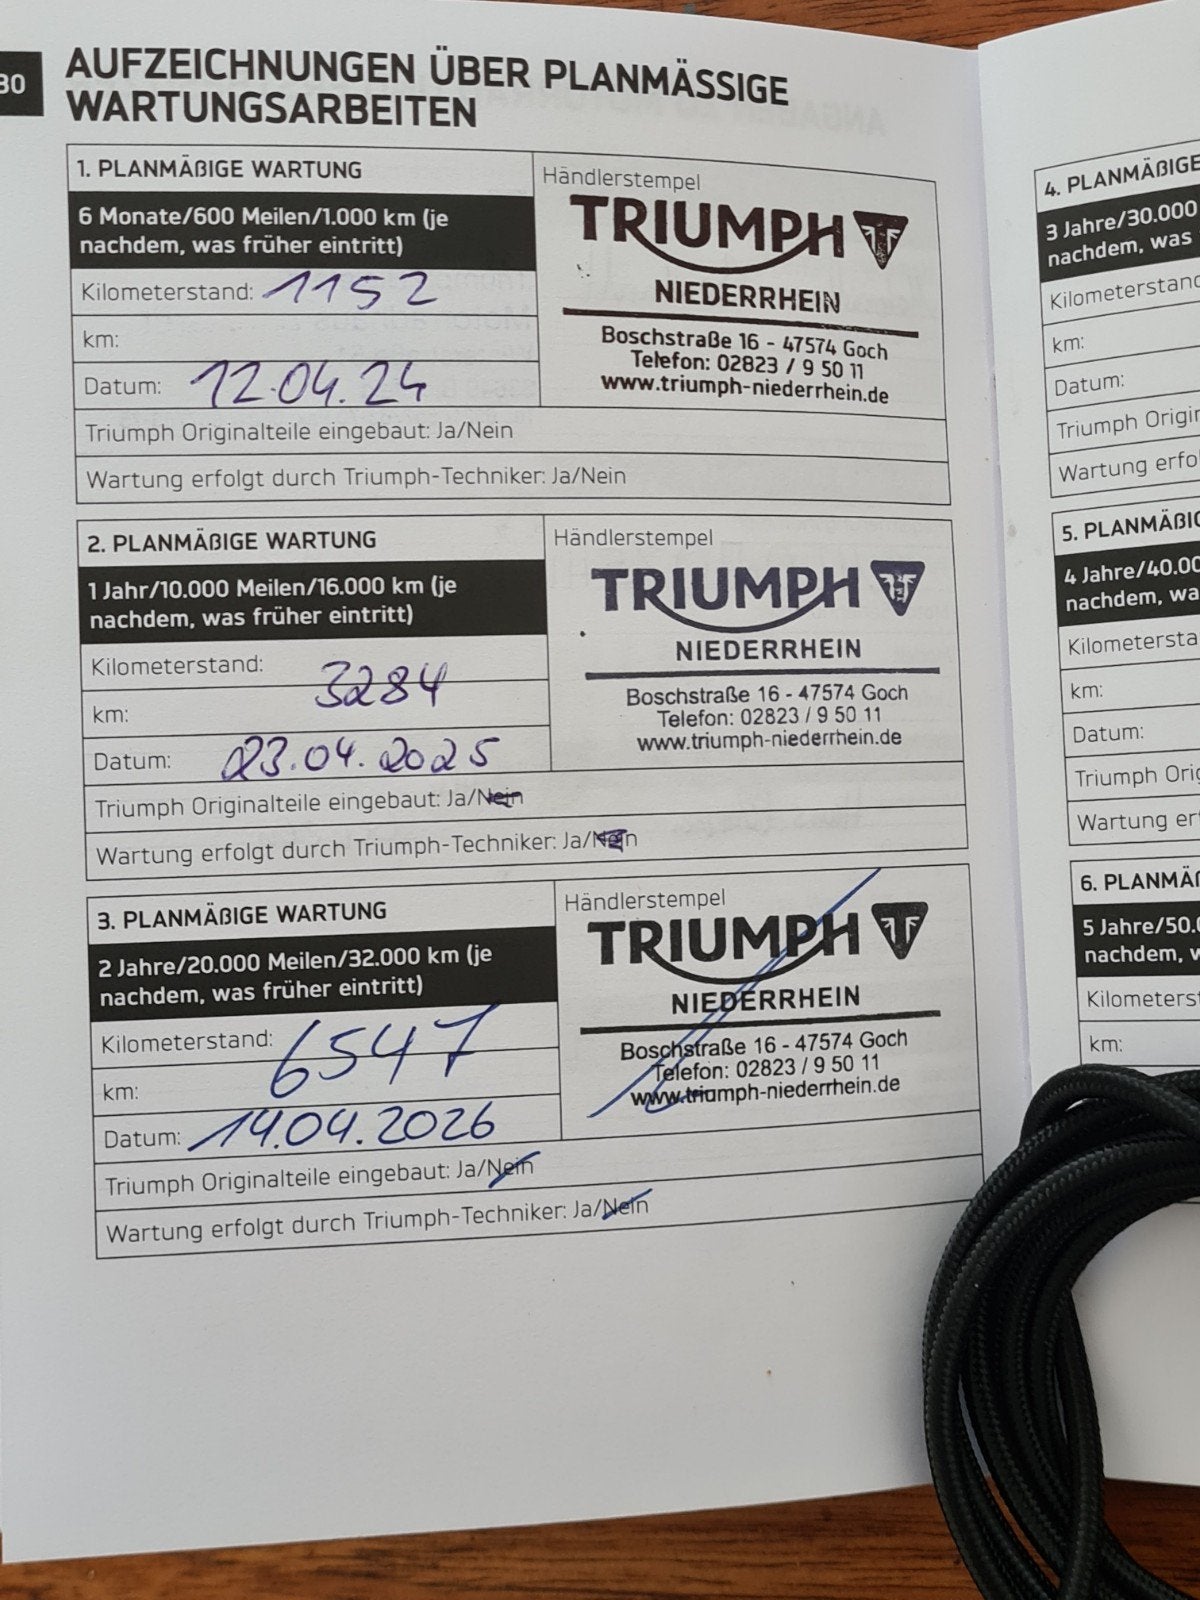 30
AUFZEICHNUNGEN ÜBER PLANMÄSSIGE
WARTUNGSARBEITEN
1. PLANMÄßIGE WARTUNG
6 Monate/600 Meilen/1.000 km (je
nachdem, was früher eintritt)
Kilometerstand: 1152
km:
Datum: 12.04.24
Händlerstempel
TRIUMPH
NIEDERRHEIN
Boschstraße 16 - 47574 Goch
Telefon: 02823 / 9 50 11
www.triumph-niederrhein.de
Triumph Originalteile eingebaut: Ja/Nein
Wartung erfolgt durch Triumph-Techniker: Ja/Nein
2. PLANMÄßIGE WARTUNG
1 Jahr/10.000 Meilen/16.000 km (je
nachdem, was früher eintritt)
Kilometerstand:
3284
km:
Datum: 23.04.2025
Händlerstempel
TRIUMPH
NIEDERRHEIN
Boschstraße 16 - 47574 Goch
Telefon: 02823 / 9 50 11
www.triumph-niederrhein.de
Triumph Originalteile eingebaut: Ja/Nein
Wartung erfolgt durch Triumph-Techniker: Ja/Nein
3. PLANMÄßIGE WARTUNG
2 Jahre/20.000 Meilen/32.000 km (je
nachdem, was früher eintritt)
Kilometerstand:
6547
km:
Datum: 14.04.2026
Händlerstempel
TRIUMPH
NIEDERRHEIN
Boschstraße 16 - 47574 Goch
Telefon: 02823 / 9 50 11
www.triumph-niederrhein.de
Triumph Originalteile eingebaut: Ja/Nein
Wartung erfolgt durch Triumph-Techniker: Ja/Nein
4. PLANMÄßIGE
3 Jahre/30.000
nachdem, was
Kilometerstand
km:
Datum:
Triumph
Wartung
5.
4 Jahre/40.00
nachdem,
km:
Datum:
Triumph
Wartung
6.
5 Jahre/50.
nachdem,
km: